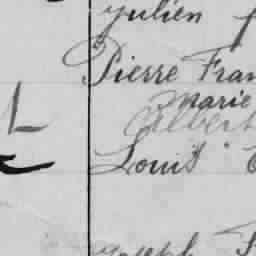 Julien
Pierre Fran
Marie
Albert
Louis
Joseph